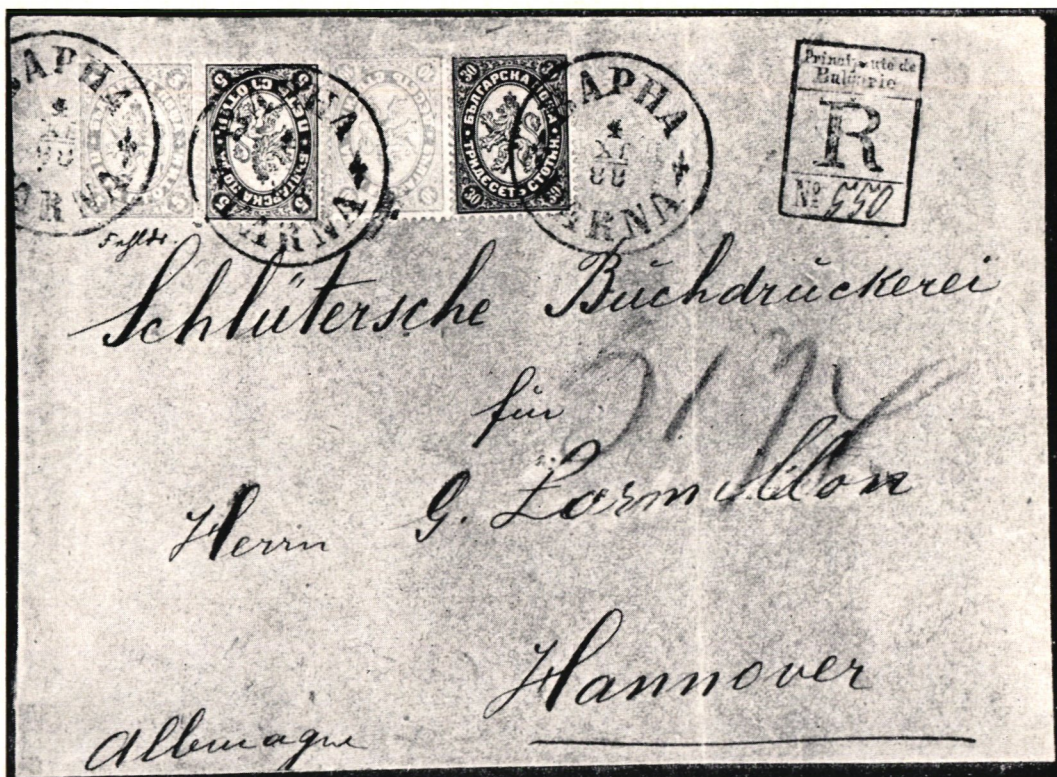 ВАРНА
4
XI
88
VARNA
5 БЪЛГАРСКА ПОЩА 5
5 ПЕТЬ СТОТИН. 5
ВАРНА
VARNA
30 БЪЛГАРСКА ПОЩА 30
30 ТРИДЕСЕТ СТОТИНКИ 30
ВАРНА
4
XI
88
VARNA
Principauté de
Bulgarie
R
No 550
Fehldr.
Schlütersche Buchdruckerei
für
Herrn G.
Hannover
Allemagne